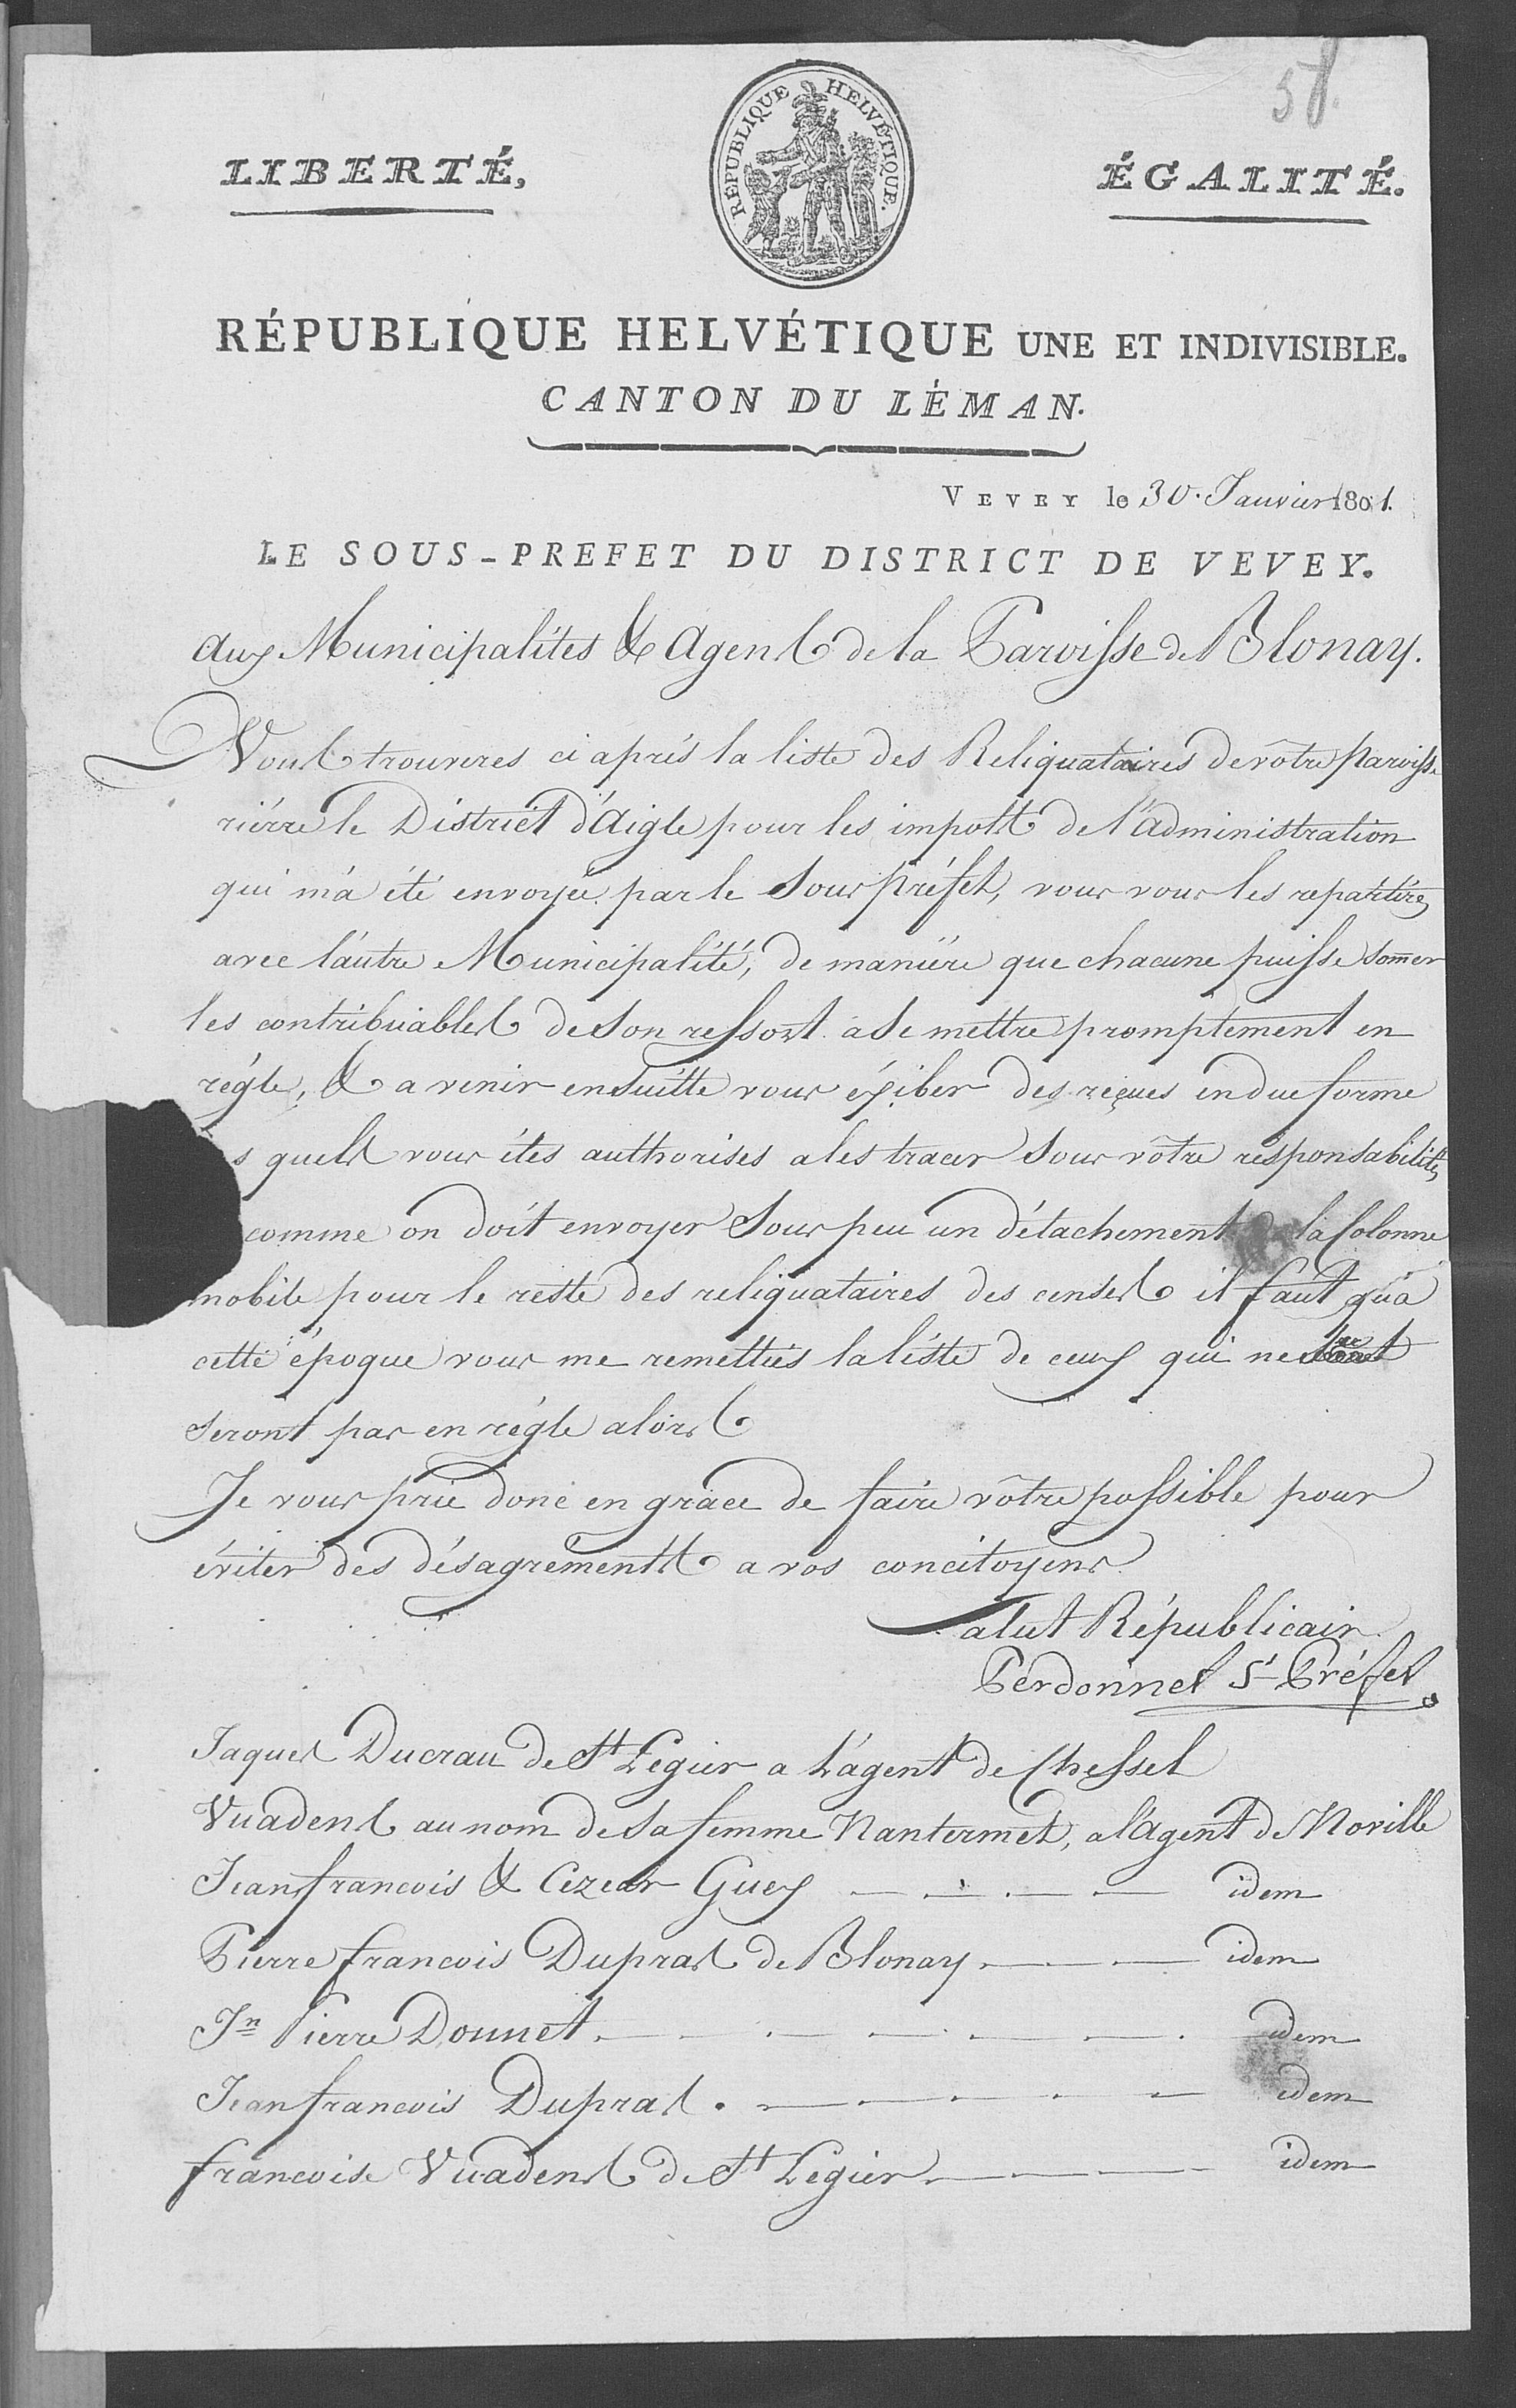 58.
LIBERTÉ,
RÉPUBLIQUE HELVÉTIQUE.
ÉGALITÉ.
RÉPUBLIQUE HELVÉTIQUE UNE ET INDIVISIBLE.
CANTON DU LÉMAN.
VEVEY le 30. Janvier 1801.
LE SOUS-PREFET DU DISTRICT DE VEVEY.
aux Municipalités & Agents de la Paroisse de Blonay.
Vous trouveres ci aprés la liste des Reliquataires de vôtre paroisse
riérre le District d'Aigle pour les impots de l'administration
qui m'a été envoyée par le Sous préfet, vous vous les repartires
avec l'autre Municipalité, de maniére que chacune puisse somer
les contribuables de son ressort a se mettre promptement en
régle, & a venir ensuitte vous exiber des reçues en due forme
s quels vous étes authorises a les tracer sous vôtre responsabilité,
comme on doit envoyer sous peu un détachement de la Colonne
mobile pour le reste des reliquataires des censes il faut qu'a
cette époque vous me remettiés la liste de ceux qui ne
seront pas en régle alors
Je vous prie donc en grace de faire vôtre possible pour
éviter des désagréments a vos concitoyens.
Salut Républicain
Perdonnet S-Préfet
Jaques Ducrau de St Legier a l'agent de Chessel
Vuadens au nom de sa femme Nantermet, a l'agent de Noville
Jeanfrancois & Cezear Guex idem
Pierre francois Dupras de Blonay idem
Jn Pierre Donnet idem
Jeanfrancois Dupras. idem
francoise Vuadens de St Legier idem